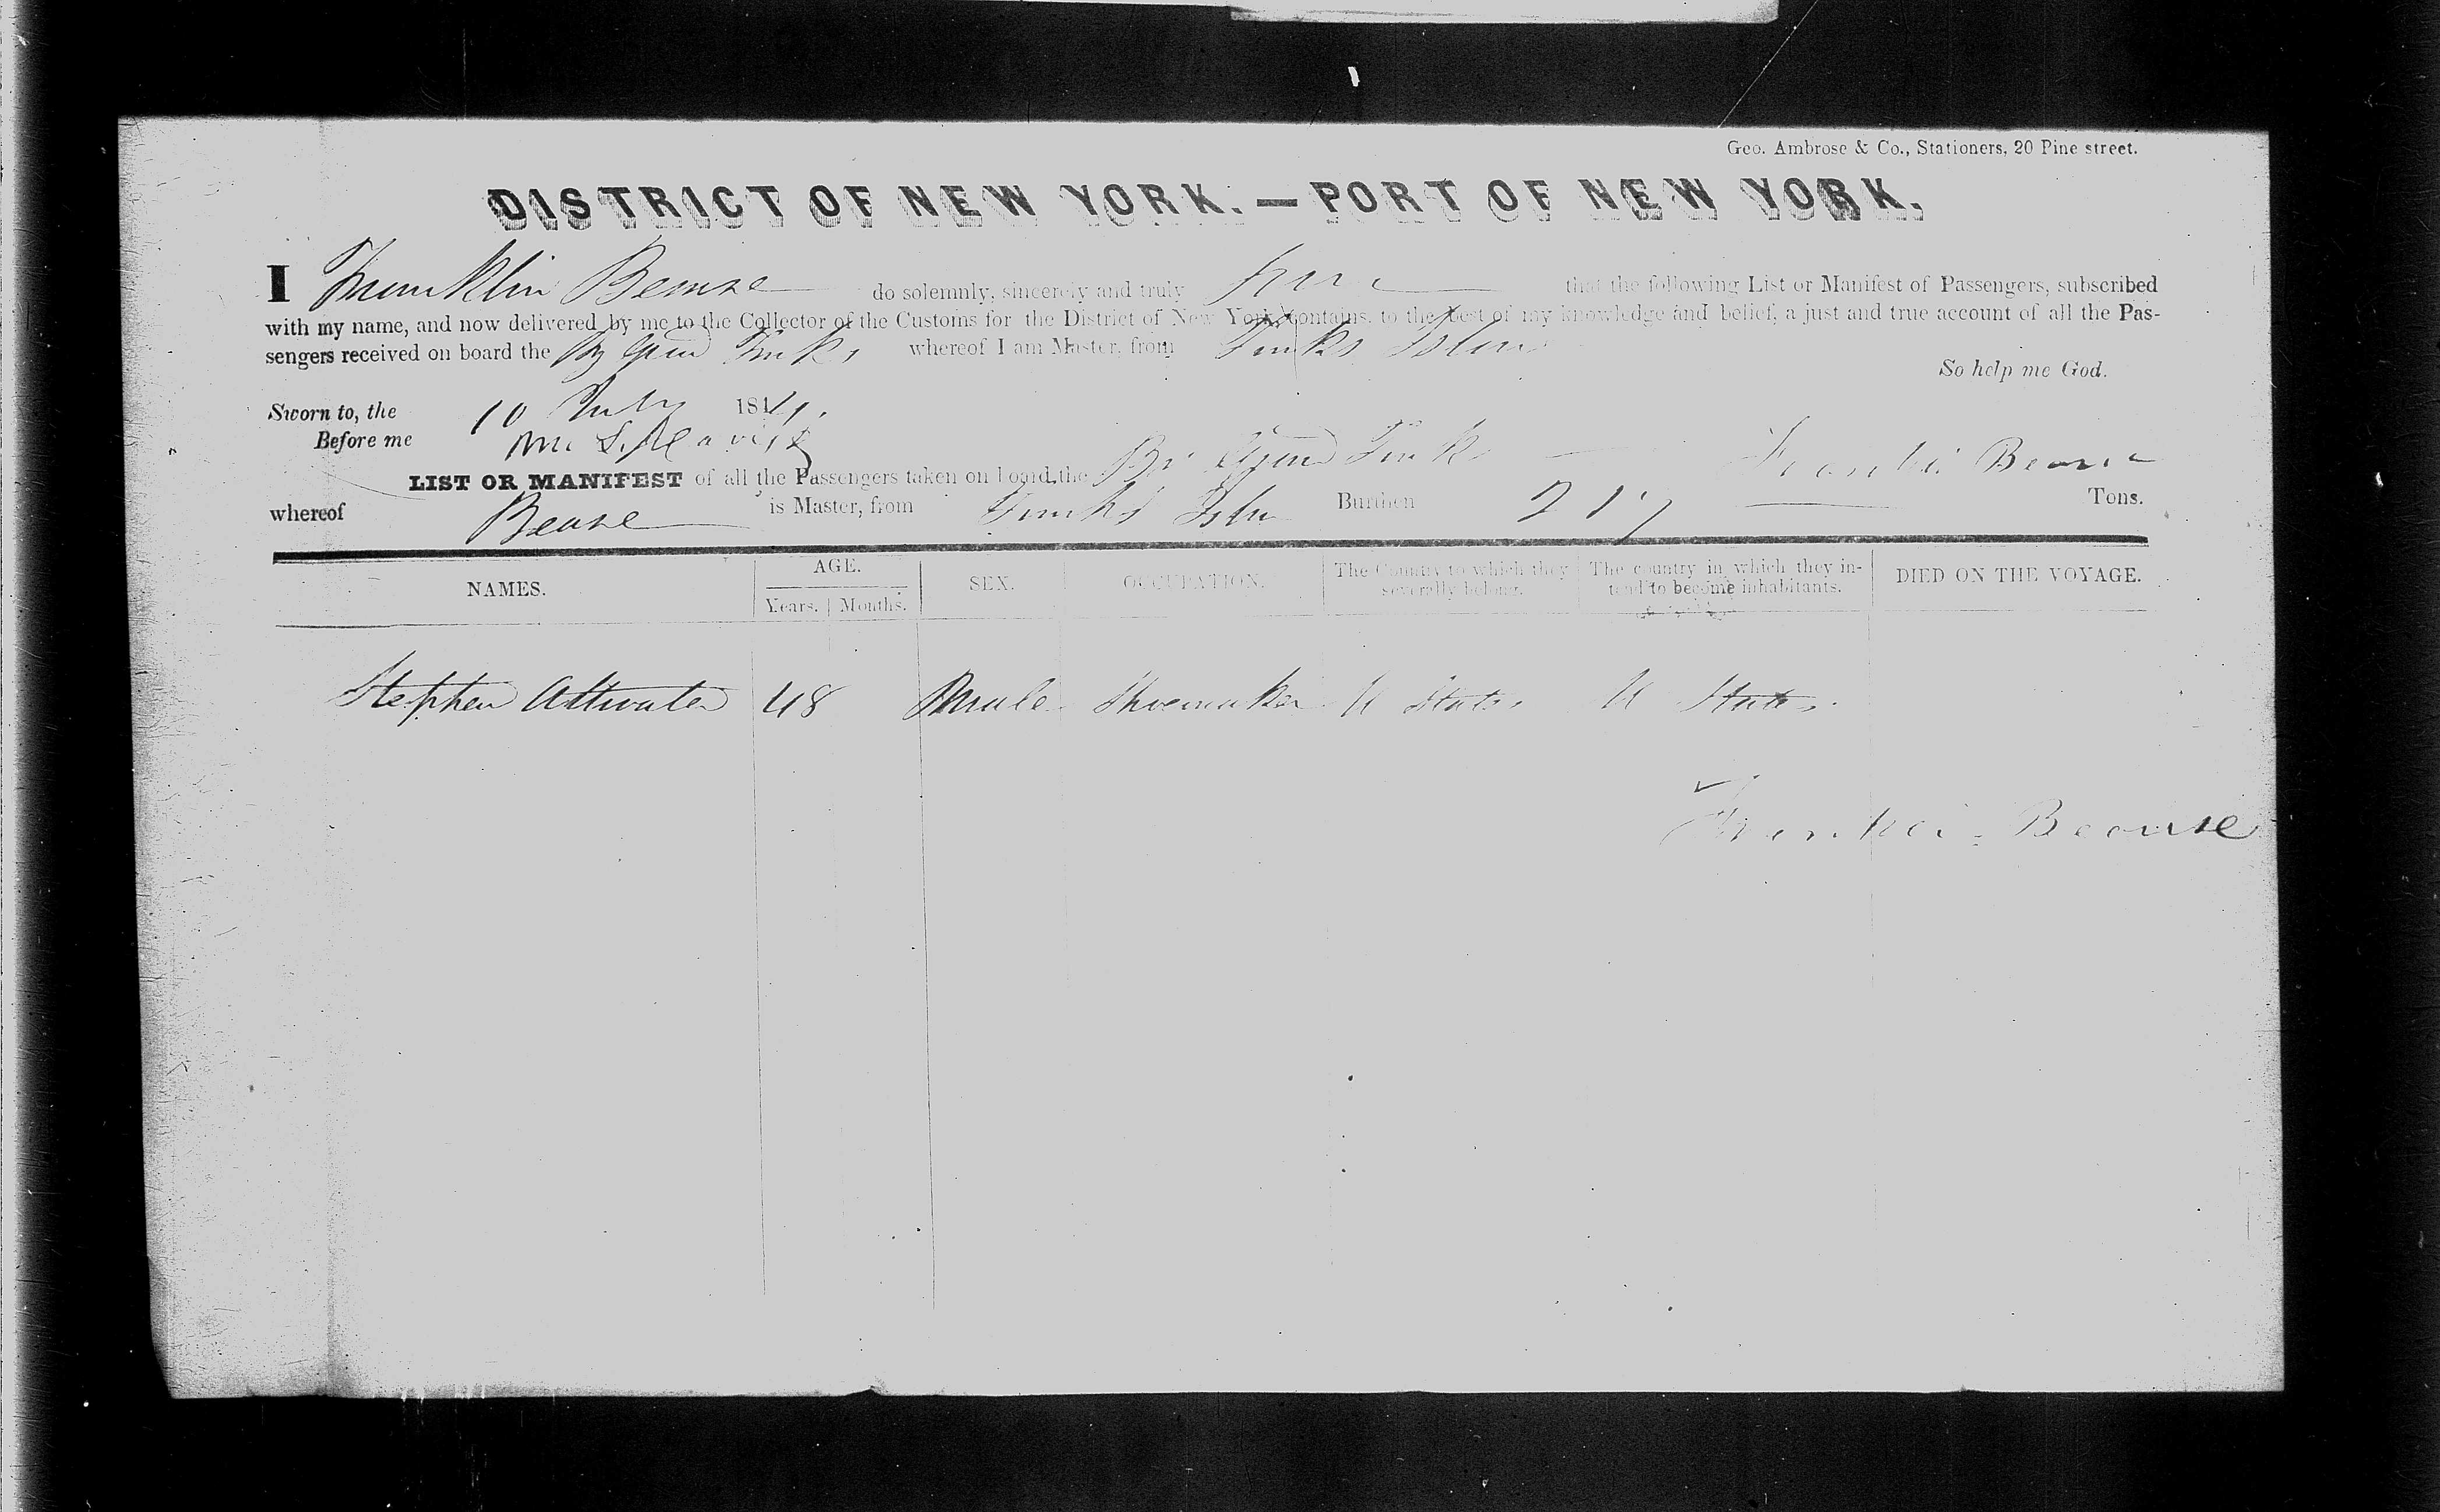 Geo. Ambrose & Co., Stationers, 20 Pine street.
DISTRICT OF NEW YORK.—PORT OF NEW YORK.
I Franklin Bearse do solemnly, sincerely and truly that the following List or Manifest of Passengers, subscribed
with my name, and now delivered by me to the Collector of the Customs for the District of New York, contains, to the best of my knowledge and belief, a just and true account of all the Pas-
sengers received on board the Turks whereof I am Master, from Turks Island
So help me God.
Sworn to, the 10 July 184
Before me
Bearse
LIST OR MANIFEST of all the Passengers taken on board the Turks
whereof Bearse is Master, from Turks Burthen 217 Tons.
NAMES. AGE. Years. Months. SEX. OCCUPATION. The Country to which they severally belong. The country in which they in- tend to become inhabitants. DIED ON THE VOYAGE.
Stephen Attwater 48 Male Shoemaker U States U States.
Bearse